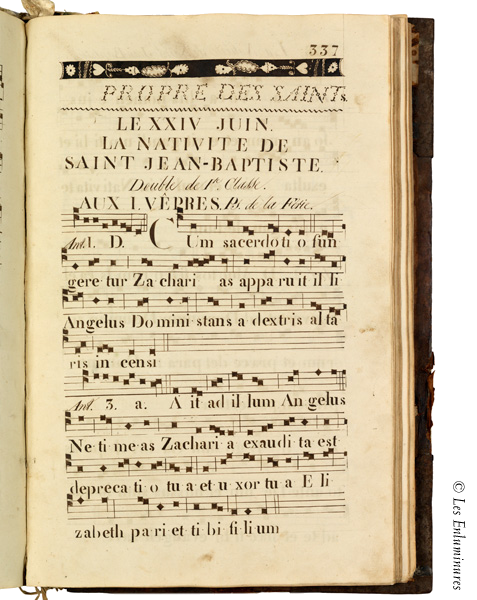 337
PROPRE DES SAINTS.
LE XXIV JUIN.
LA NATIVITE DE
SAINT JEAN-BAPTISTE.
Double de 1re. Classe.
AUX I. VÊPRES. Ps. de la Férie.
Ant. 1. D. CUm sacerdoti o fun
gere tur Za chari as appa ru it il li
Angelus Do mi ni stans a dextris al ta
ris in censi
Ant. 3. a. A it ad il lum An gelus
Ne ti me as Zachari a exaudi ta est
depreca ti o tu a et u xor tu a E li
zabeth pa ri et ti bi fi li um
© Les Enluminures